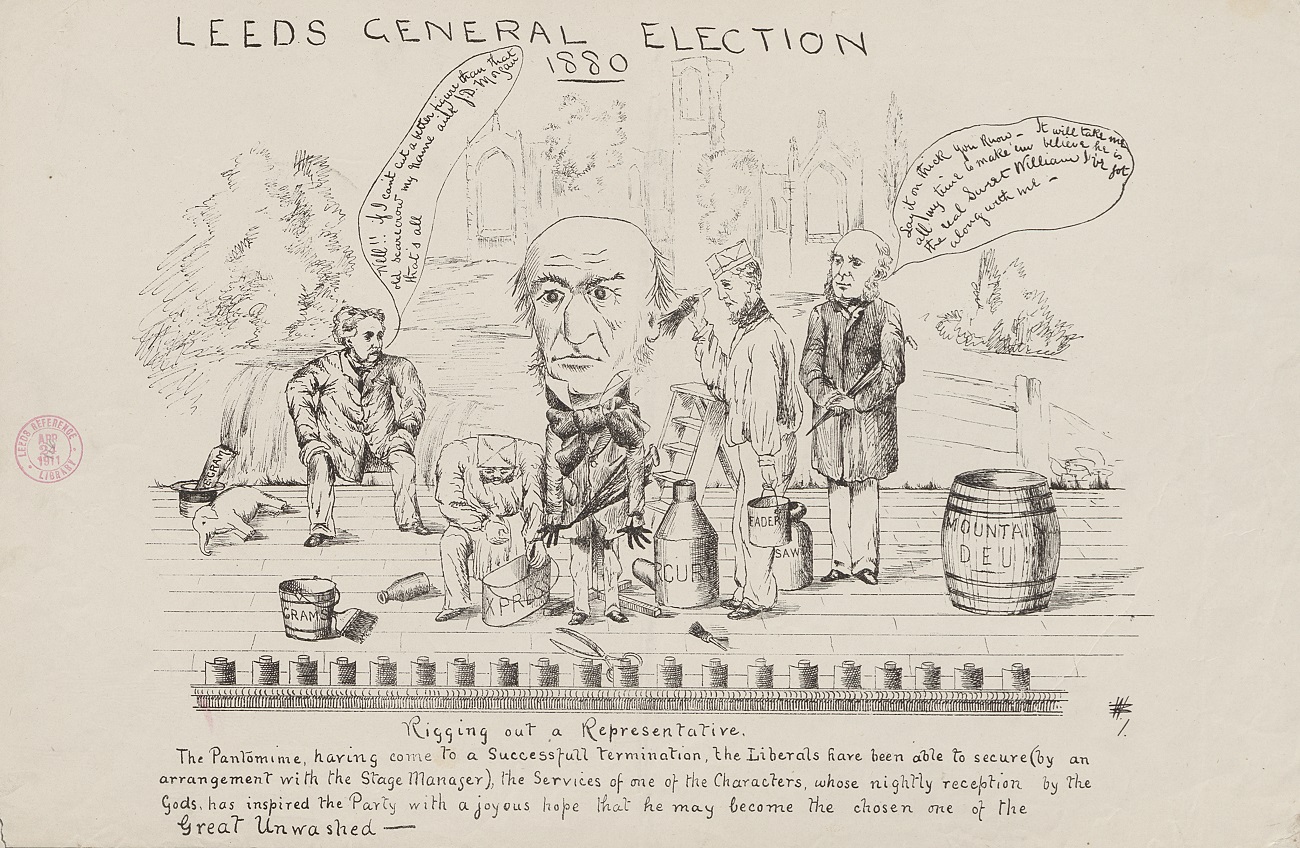 LEEDS GENERAL ELECTION
1880
Well!! if I can't cut a better figure than that
old scarecrow my name ain't J.D. Morgan
that's all
Lay it on thick you know - It will take me
all my time to make 'em believe he is
the real Sweet William I've got
along with me -
LEEDS REFERENCE
APR
24
1911
LIBRARY
GRAM
GRAMS
XPRESS
RCURY
EADER
SAW
MOUNTAIN
DEU
Rigging out a Representative.
The Pantomime, having come to a Successfull termination, the Liberals have been able to secure (by an
arrangement with the Stage Manager), the Services of one of the Characters, whose nightly reception by the
Gods, has inspired the Party with a joyous hope that he may become the chosen one of the
Great Unwashed —